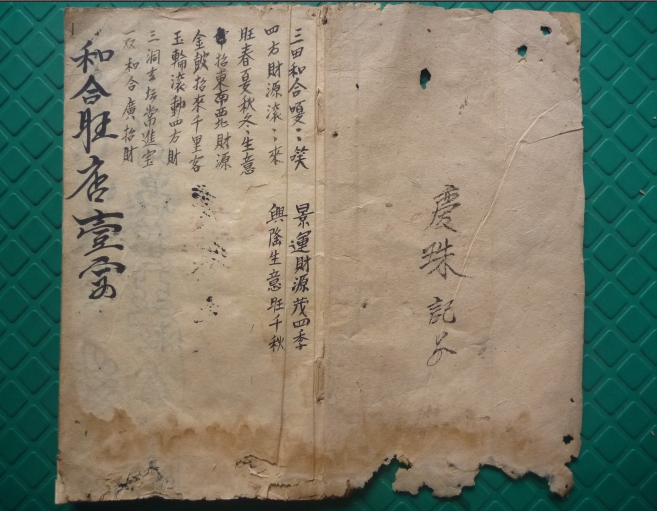 慶珠記
三田和合嗄〻笑
景運財源茂四季
四方財源滾〻來
興隆生意旺千秋
旺春夏秋冬〻生意
招東南西北財源
金鼓招來千里客
玉輪滾動四方財
三洞玄坛常進宝
和合廣招財
和合旺店壹宗